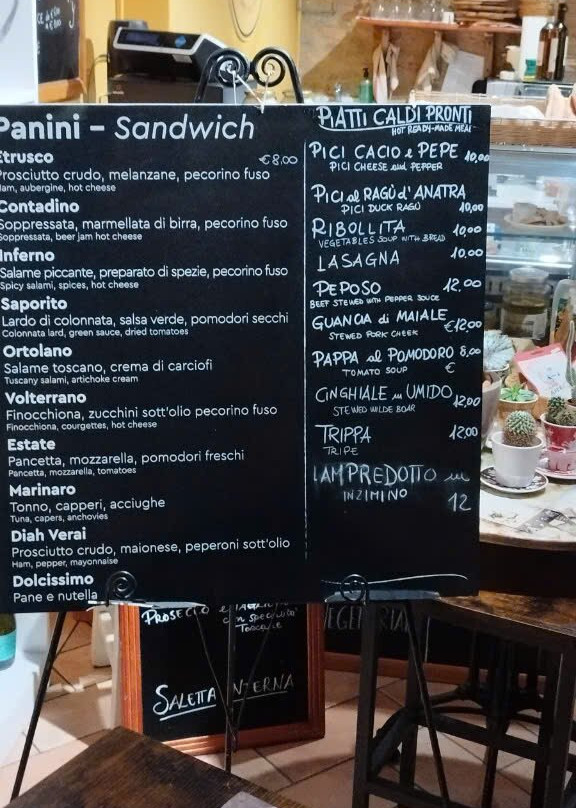 Panini – Sandwich
Etrusco €8,00
Prosciutto crudo, melanzane, pecorino fuso
Ham, aubergine, hot cheese
Contadino
Soppressata, marmellata di birra, pecorino fuso
Soppressata, beer jam hot cheese
Inferno
Salame piccante, preparato di spezie, pecorino fuso
Spicy salami, spices, hot cheese
Saporito
Lardo di colonnata, salsa verde, pomodori secchi
Colonnata lard, green sauce, dried tomatoes
Ortolano
Salame toscano, crema di carciofi
Tuscany salami, artichoke cream
Volterrano
Finocchiona, zucchini sott'olio pecorino fuso
Finocchiona, courgettes, hot cheese
Estate
Pancetta, mozzarella, pomodori freschi
Pancetta, mozzarella, tomatoes
Marinaro
Tonno, capperi, acciughe
Tuna, capers, anchovies
Diah Verai
Prosciutto crudo, maionese, peperoni sott'olio
Ham, pepper, mayonnaise
Dolcissimo
Pane e nutella
PIATTI CALDI PRONTI
HOT READY-MADE MEAL
PICI CACIO e PEPE 10,00
PICI CHEESE and PEPPER
PICI al RAGÙ d'ANATRA
PICI DUCK RAGÚ 10,00
RIBOLLITA 10,00
VEGETABLES SOUP WITH BREAD
LASAGNA 10,00
PEPOSO 12,00
BEEF STEWED WITH PEPPER SOUCE
GUANCIA di MAIALE €12,00
STEWED PORK CHEEK
PAPPA al POMODORO 8,00
TOMATO SOUP €
CINGHIALE in UMIDO
STEWED WILDE BOAR 12,00
TRIPPA 12,00
TRIPE
LAMPREDOTTO in
INZIMINO 12
PROSECCO e
con specialità
Toscane
SALETTA INTERNA